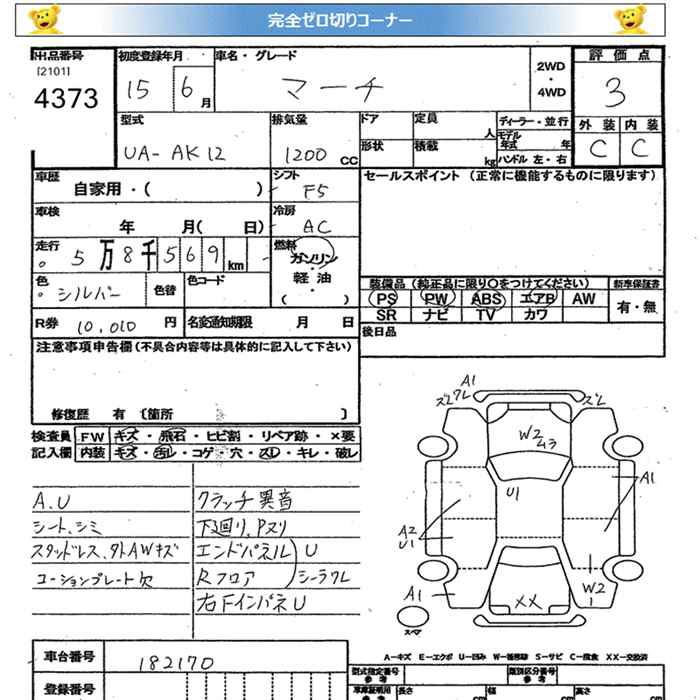 完全ゼロ切りコーナー
出品番号
[2101]
4373
初度登録年月
15 6 月
車名・グレード
マーチ
2WD
・
4WD
評価点
3
外装 内装
C C
型式
UA-AK12
排気量
1200 CC
ドア
定員
人
形状
積載
kg
ディーラー・並行
モデル
年式 年
ハンドル 左・右
車歴
自家用・( )
シフト
F5
セールスポイント (正常に機能するものに限ります)
車検
年 月( 日)
冷房
AC
走行
5万8千569km
燃料
ガソリン
・
軽油
( )
色
シルバー
色替
色コード
装備品 (純正品に限り○をつけてください)
新車保証書
PS PW ABS エアB AW
SR ナビ TV カワ
有・無
R券 10,010 円
名変通知期限 月 日
後日品
注意事項申告欄 (不具合内容等は具体的に記入して下さい)
修復歴 有 〔箇所 〕
検査員
記入欄
FW キズ・飛石・ヒビ割・リペア跡・×要
内装 キズ・汚レ・コゲ・穴・スレ・キレ・破レ
A.U
シート、シミ
スタッドレス、外AWキズ
コーションプレート欠
クラッチ異音
下廻り、Pヌリ
エンドパネル
Rフロア
U
シーラワレ
右FインパネU
A1
ズレワレ
ズレ
W2
ムラ
U1
A1
A2
U1
A1
W2
XX
スペア
A-キズ E-エクボ U-凹み W-補修跡 S-サビ C-腐食 XX-交換済
車台番号
182170
登録番号
型式指定番号
参考
類別区分番号
参考
車庫証明用
参考
長さ
cm
幅
cm
高さ
cm